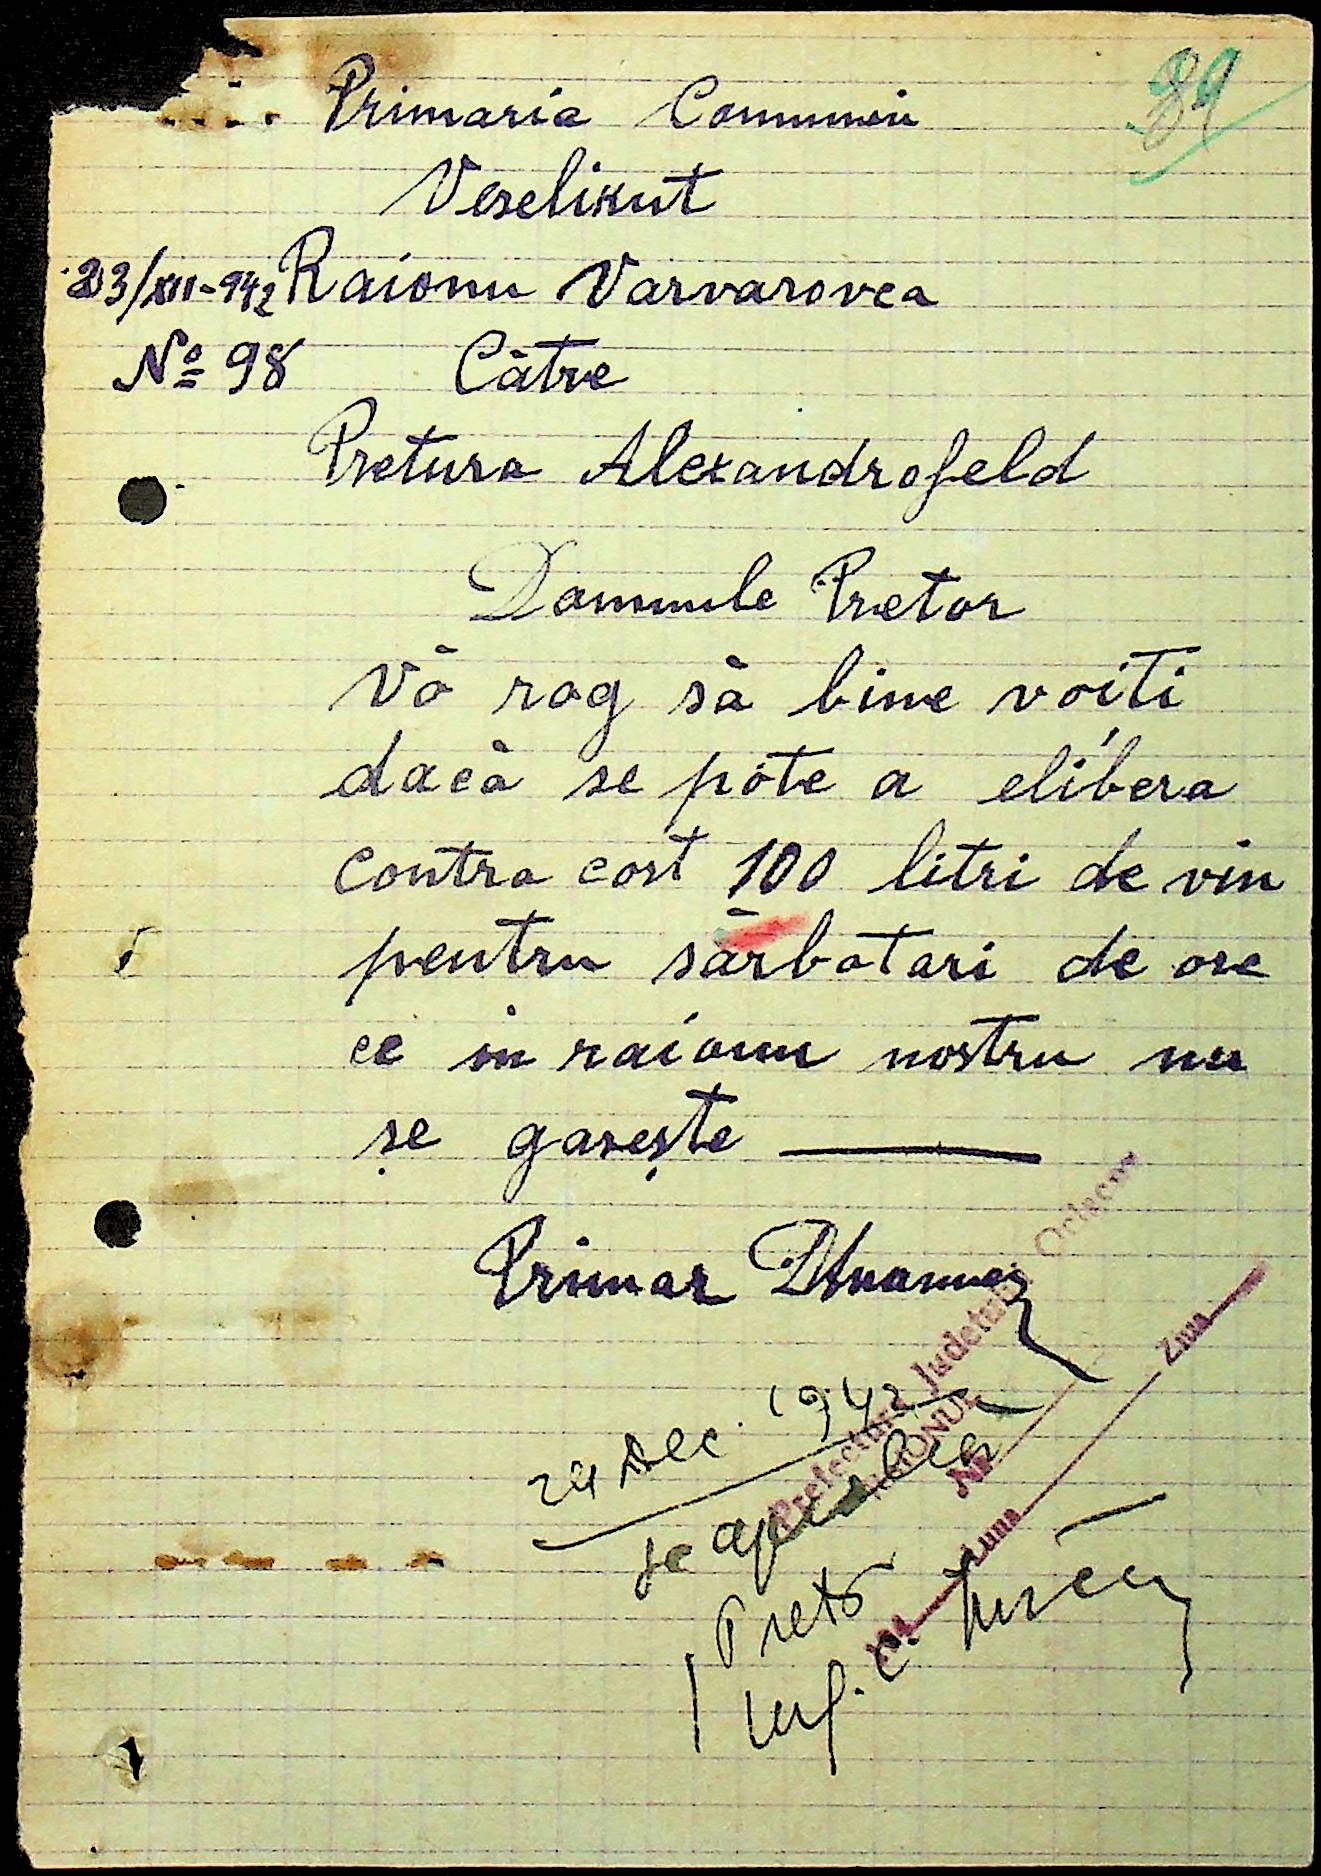 89
Primaria Comunei
Veselikut
23/XII-942 Raionu Varvarovca
№ 98 Către
Pretura Alexandrofeld
Domnule Pretor
Vă rog să bine voiti
dacă se pote a elibera
contra cost 100 litri de vin
pentru sărbatari de ore
ce in raionu nostru nu
se gasește
Primar
Prefectura Judetului Ociacov
RAIONUL
Nr
194 Luna Ziua
24 Dec. 1942
se aproba
Pretor